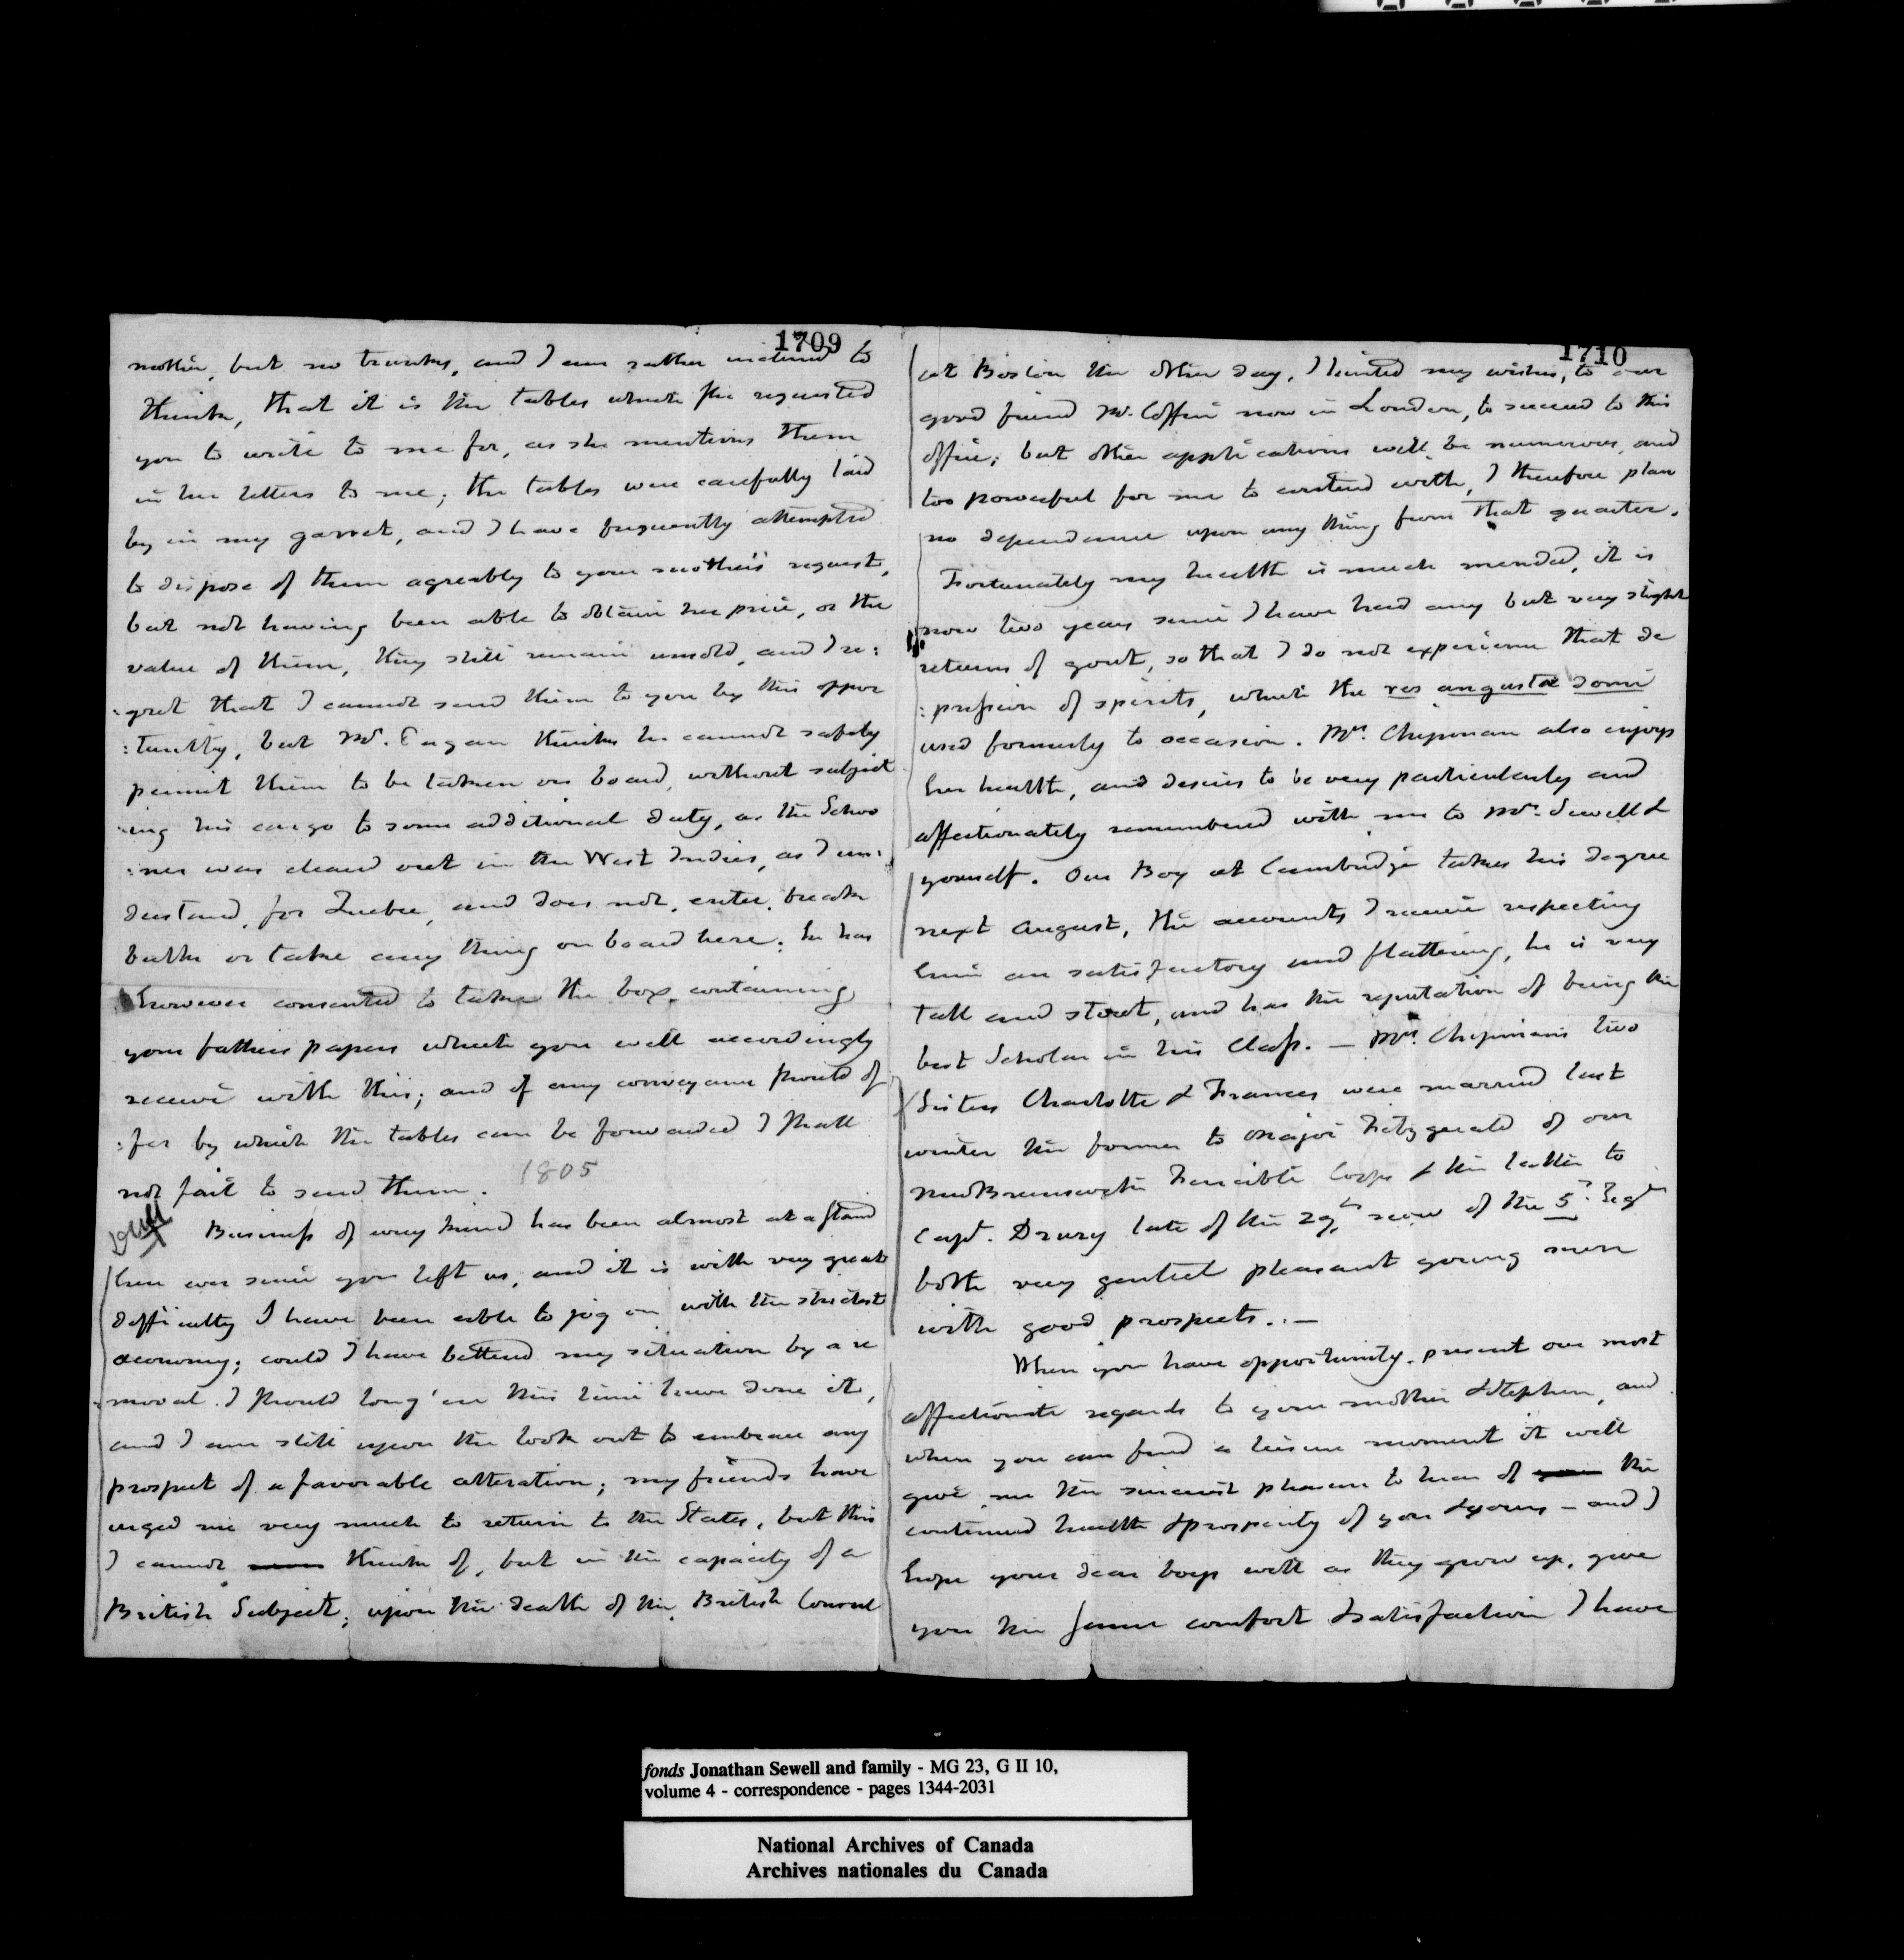 1709
mother, but no trunks, and I am rather inclined to
think, that it is the tables which she requested
you to write to me for, as she mentions them
in her letters to me; the tables were carefully laid
by in my garret, and I have frequently attempted
to dispose of them agreably to your mother's request,
but not having been able to obtain her price, or the
value of them, they still remain unsold, and I re:
:gret that I cannot send them to you by this oppor
:tunity, but Mr. Cagan thinks he cannot safely
permit them to be taken on board, without subject
:ing his cargo to some additional duty, as the Schoo
:ner was cleared out in the West Indies, as I un:
derstand, for Quebec, and does not, enter, break
bulk or take any thing on board here: he has
however consented to take the box, containing
your fathers papers which you will accordingly
receive with this; and if any conveyance should of
:fer by which the tables can be forwarded I shall
not fail to send them. 1805
Business of every kind has been almost at a stand
here ever since you left us, and it is with very great
difficulty I have been able to jog on with the strictest
oeconomy; could I have bettered my situation by a re
moval. I should long 'ere this time have done it,
and I am still upon the look out to embrace any
prospect of a favorable alteration; my friends have
urged me very much to return to the States, but this
I cannot think of, but in the capacity of a
British Subject; upon the death of the British Consul
1710
at Boston the other day, I hinted my wishes, to our
good friend Mr. Coffin now in London, to succeed to this
office; but other applications will be numerous, and
too powerful for me to contend with, I therefore place
no dependence upon any thing from that quarter.
Fortunately my health is much mended, it is
now two years since I have had any but very slight
returns of gout, so that I do not experience that de
:pression of spirits, which the res angustæ domi
used formerly to occasion. Mrs. Chipman also enjoys
her health, and desires to be very particularly and
affectionately remembered with me to Mrs. Sewell &
yourself. Our Boy at Cambridge takes his degree
next August, the accounts I receive respecting
him are satisfactory and flattering, he is very
tall and stout, and has the reputation of being the
best Scholar in his Class. — Mrs. Chipman's two
Sisters Charlotte & Frances were married last
winter the former to Major Fitzgerald of our
New Brunswick Fencible Corps & the latter to
Capt. Drury late of the 29th, now of the 5th. Regt
both very genteel pleasant young men
with good prospects. —
When you have opportunity. present our most
affectionate regards to your mother & Stephen, and
when you can find a leisure moment it will
give me the sincerest pleasure to hear of your the
continued health & prosperity of you & yours — and I
hope your dear boys will as they grow up, give
you the same comfort & satisfaction I have
fonds Jonathan Sewell and family - MG 23, G II 10,
volume 4 - correspondence - pages 1344-2031
National Archives of Canada
Archives nationales du Canada